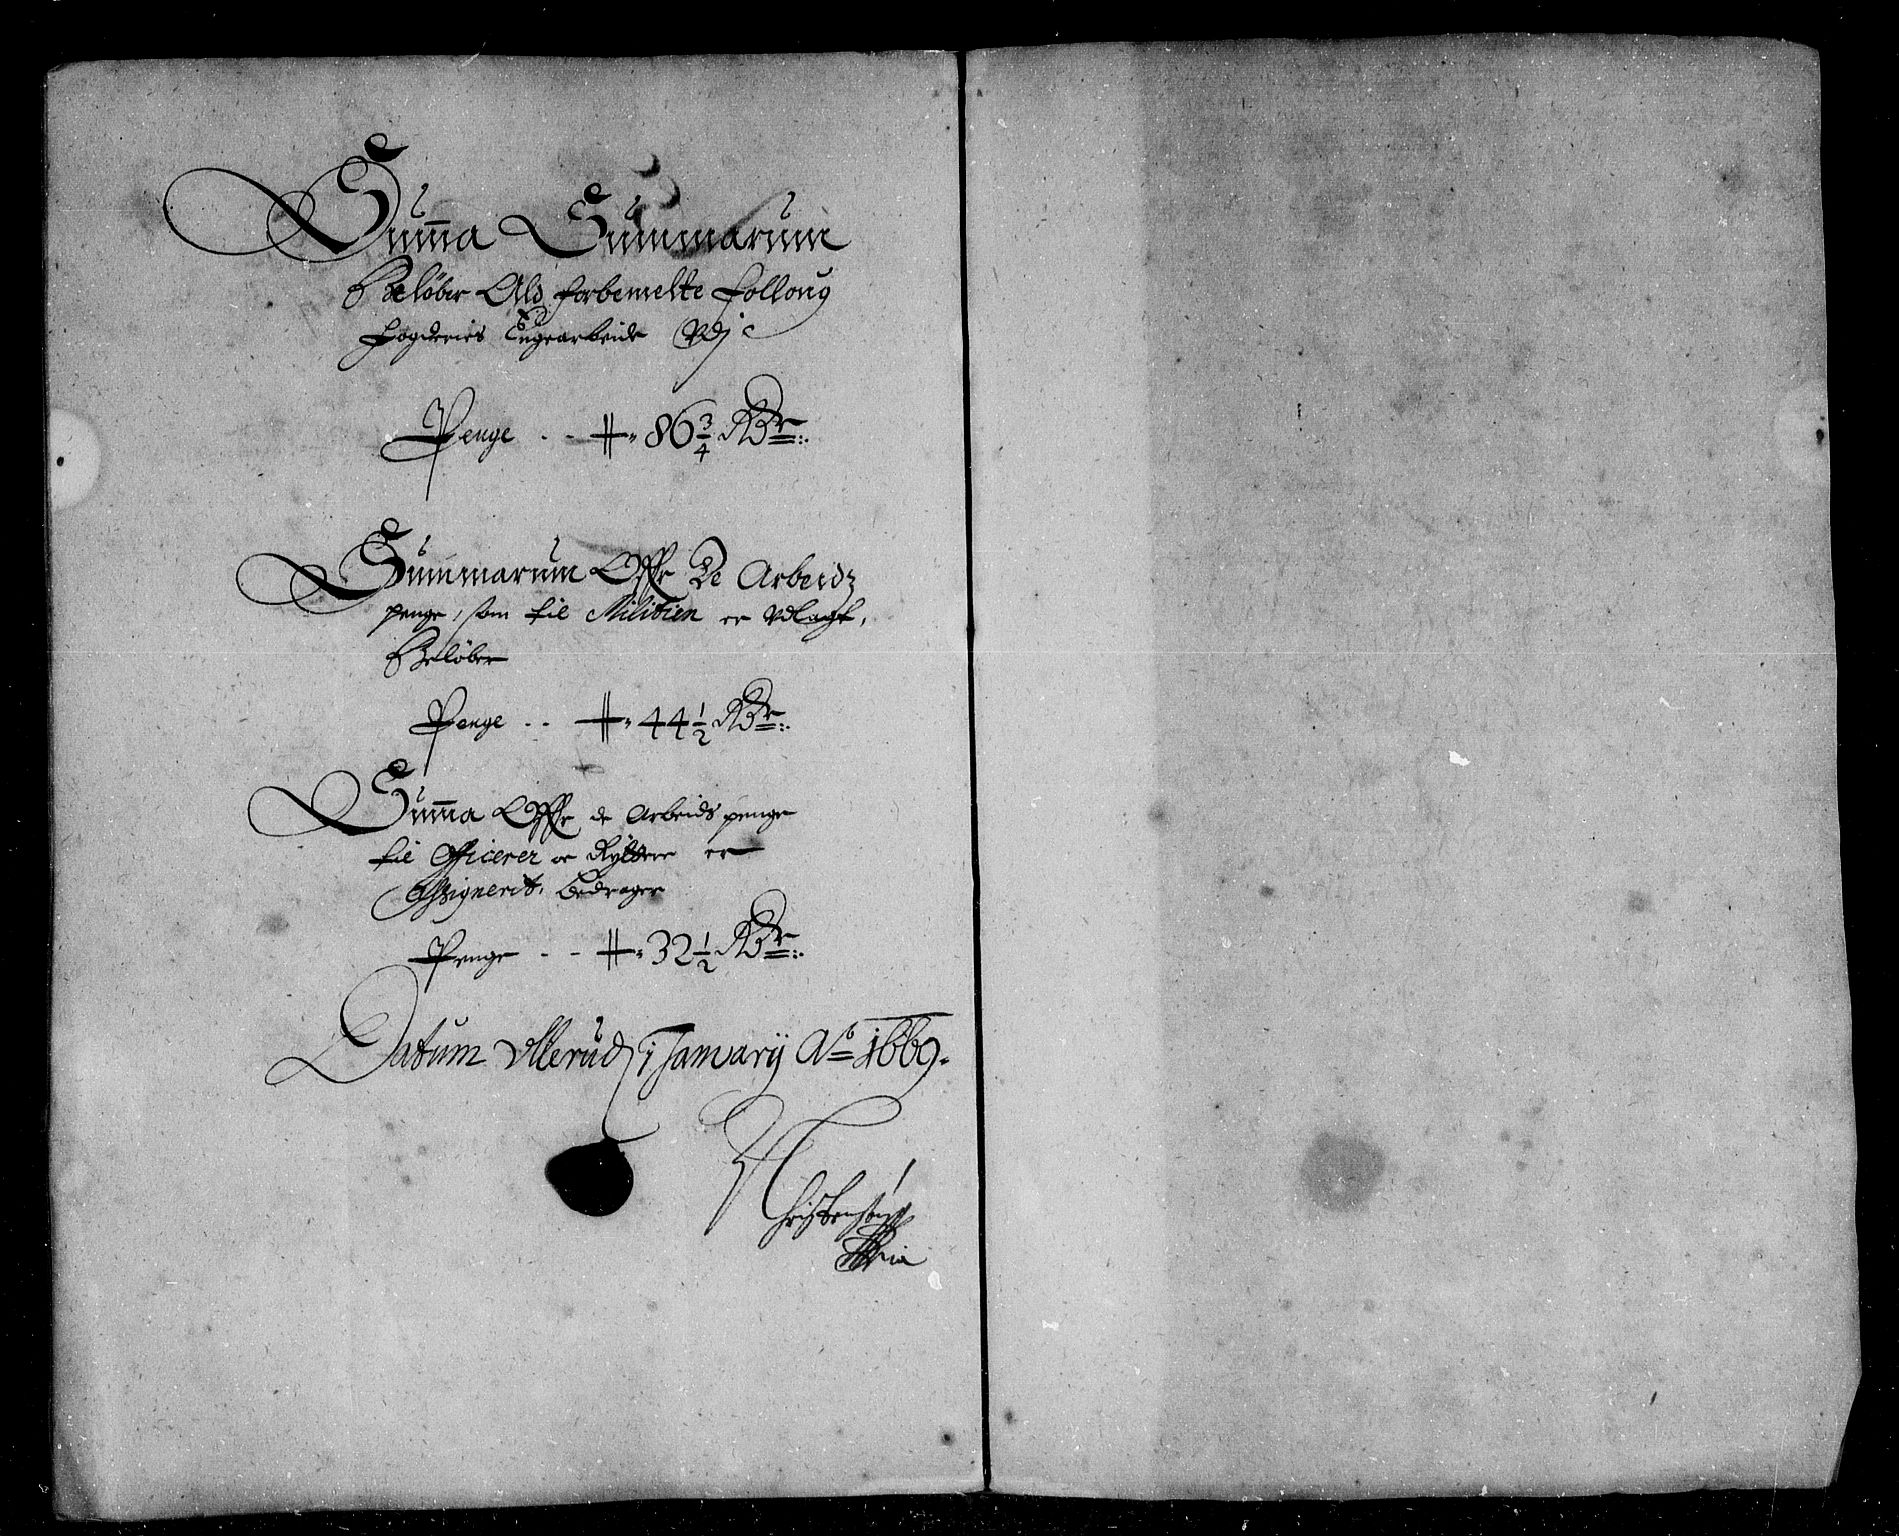 Summa Summarum
Beløber Ald forbemelte folloug
fogderies Ugearbeide
Penge - - 86 3/4 Rdr
Summarum Offr De Arbeidz
penge, som til Militien er Vdlagt,
Beløber
Penge - - 44 1/2 Rdr
Summa Offr de Arbeids penge
til Officerer oc Ryttere er
Assignerit, bedrager
Penge - - 32 1/2 Rdr
Datum Ullerud 1 January Ao 1669.
Christensøn